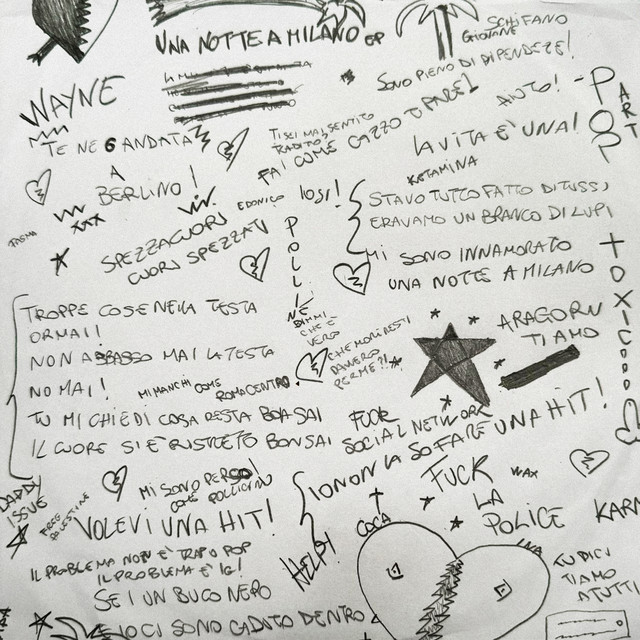 UNA NOTTE A MILANO EP
SCHIFANO
GIOVANE
SONO PIENO DI DIPENDEZE!
WAYNE
TE NE 6 ANDATA
A
BERLINO!
TI SEI MAI SENTITO
TRADITO
FAI COME CAZZO TI PARE!
AIUTO!
POP
ART
LA VITA E' UNA!
KETAMINA
EDONICO
IOSI!
STAVO TUTTO FATTO DI TUSSI
ERAVAMO UN BRANCO DI LUPI
XXX
SPEZZACUORI
CUORI SPEZZATI
POLLINE
MI SONO INNAMORATO
UNA NOTTE A MILANO
TOXICOOOO
TROPPE COSE NELLA TESTA
ORMAI!
NON ABBASSO MAI LA TESTA
NO MAI!
MI MANCHI COME
ROMA CENTRO
TU MI CHIEDI COSA RESTA
IL CUORE SI E' RISTRETO BONSAI
DIMMI
CHE E'
VERO
CHE MORIRESTI
DAVVERO
PER ME?!
ARAGORN
TI AMO
FUCK
SOCIAL NETWORK
IO NON LA SO FARE UNA HIT!
DADDY
ISSUE
FREE
PALESTINE
MI SONO PERSO!
COME POLLICINO
VOLEVI UNA HIT!
IL PROBLEMA NON E' TRAP O POP
IL PROBLEMA E' IG!
SEI UN BUCO NERO
IO CI SONO CADUTO DENTRO
HELP!
COCA
FUCK
LA
POLICE
WAX
KARM
TU DICI
TI AMO
A TUTTI